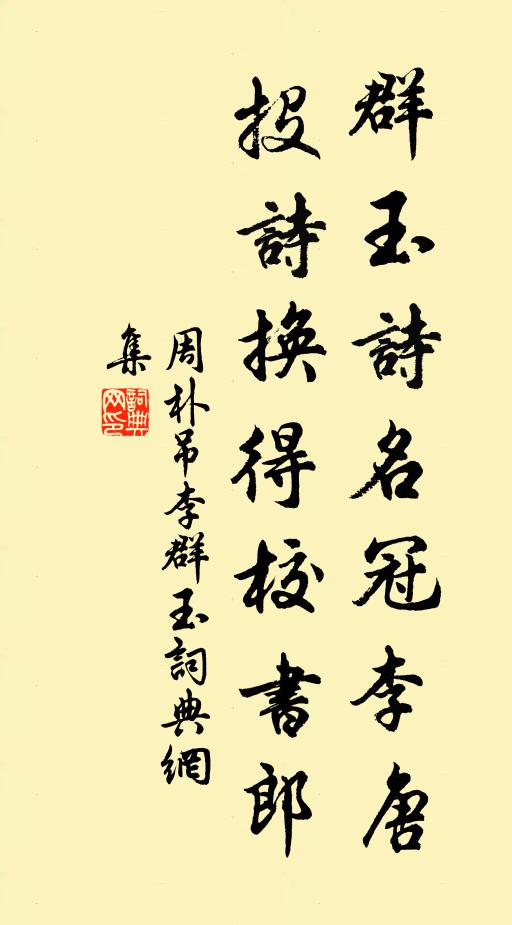 群玉詩名冠李唐
投詩換得校書郎
周朴吊李群玉詞典網
集
詞典
网印